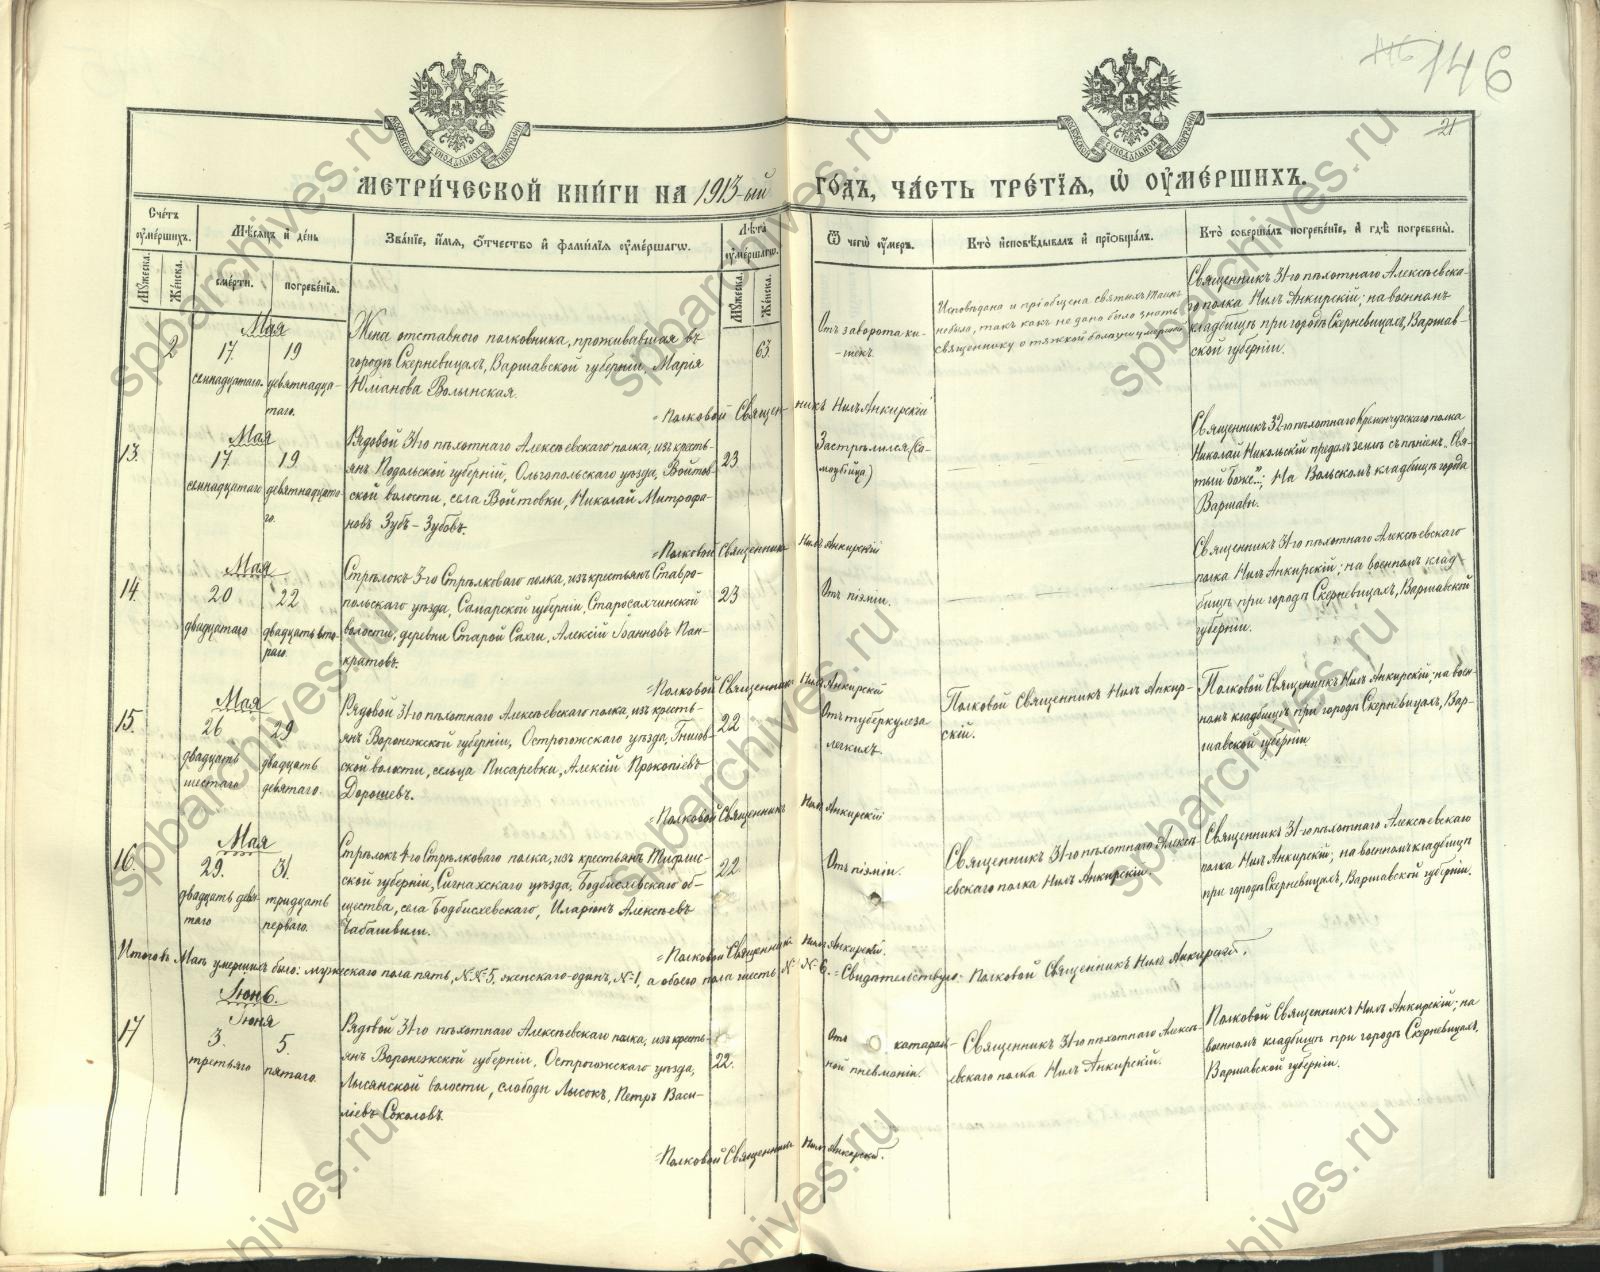 146
21
МЕТРИ́ЧЕСКОЙ КНИ́ГИ НА 1913-ый ГО́ДЪ, ЧА́СТЬ ТРЕ́ТІѦ, Ѽ ОУ҆МЕ́РШИХЪ.
Сче́тъ оу҆ме́ршихъ.
Мꙋ́жеска.
Же́нска.
Мѣ́сяцъ и҆ де́нь
сме́рти.
погребе́нія.
Зва́ніе, и҆́мя, ѻ҆́тчество и҆ фами́лія оу҆ме́ршагѡ.
Лѣ́та оу҆ме́ршагѡ.
Мꙋ́жеска.
Же́нска.
Ѿ чегѡ̀ оу҆́меръ.
Кто̀ и҆сповѣ́дывалъ и҆ прїѡбща́лъ.
Кто̀ соверша́лъ погребе́ніе, и҆ гдѣ̀ погребены̀.
2
Мая
17. 19
семнадцатаго. девятнадца-
таго.
Жена отставного полковника, проживавшая въ
городѣ Скерневицахъ, Варшавской губерніи, Марія
Юліанова Волынская.
63.
Отъ заворота ки-
шекъ.
Исповѣдана и пріобщена святыхъ Таинъ
не была, такъ какъ не дано было знать
священнику о тяжкой болѣзни умершей
Священникъ 31-го пѣхотнаго Алексѣевска-
го полка Нилъ Анкирскій; на военномъ
кладбищѣ при городѣ Скерневицахъ, Варшав-
ской губерніи.
= Полковой Священникъ Нилъ Анкирскій
13.
Мая
17. 19
семнадцатаго девятнадцата-
го.
Рядовой 31-го пѣхотнаго Алексѣевскаго полка, изъ кресть-
янъ Подольской губерній, Ольгопольскаго уѣзда, Войтов-
ской волости, села Войтовки, Николай Митрофа-
новъ Зубъ-Зубовъ.
23
Застрѣлился (са-
моубійца)
Священникъ 32-го пѣхотнаго Кременчугскаго полка
Николай Никольскій предалъ землѣ съ пѣніемъ „Свя-
тый Боже"; на Вольскомъ кладбищѣ города
Варшавы.
= Полковой Священникъ Нилъ Анкирскій
14.
Мая
20 22
двадцатаго двадцать вто-
раго.
Стрѣлокъ 3-го Стрѣлковаго полка, изъ крестьянъ Ставро-
польскаго уѣзда, Самарской губерніи, Старосахчинской
волости, деревни Старой Сахчи, Алексій Іоанновъ Пан-
кратовъ.
23
Отъ піэміи.
Священникъ 31-го пѣхотнаго Алексѣевскаго
полка Нилъ Анкирскій; на военномъ клад-
бищѣ при городѣ Скерневицахъ, Варшавской
губерніи.
= Полковой Священникъ Нилъ Анкирскій
15.
Мая
26 29
двадцать двадцать
шестаго девятаго.
Рядовой 31-го пѣхотнаго Алексѣевскаго полка, изъ кресть-
янъ Воронежской губерніи, Острогожскаго уѣзда, Гнилов-
ской волости, сельца Писаревки, Алексій Прокопіевъ
Дорошевъ.
22
Отъ туберкулеза
легкихъ.
Полковой Священникъ Нилъ Анкир-
скій.
Полковой Священникъ Нилъ Анкирскій; на воен-
номъ кладбищѣ при городѣ Скерневицахъ, Вар-
шавской губерніи.
= Полковой Священникъ Нилъ Анкирскій
16.
Мая
29. 31.
двадцать девя- тридцать
таго перваго.
Стрѣлокъ 4-го Стрѣлковаго полка, изъ крестьянъ Тифлис-
ской губерніи, Сигнахскаго уѣзда, Бодбисхевскаго об-
щества, села Бодбисхевскаго, Иларіонъ Алексѣевъ
Чабашвили.
22.
Отъ піэміи.
Священникъ 31-го пѣхотнаго Алексѣ-
евскаго полка Нилъ Анкирскій.
Священникъ 31-го пѣхотнаго Алексѣевскаго
полка Нилъ Анкирскій; на военномъ кладбищѣ
при городѣ Скерневицахъ, Варшавской губерніи.
= Полковой Священникъ Нилъ Анкирскій.
Итого въ Маѣ умершихъ было: мужескаго пола пять, №№ 5, женскаго-одинъ, № 1, а обоего пола шесть № № 6. = Свидѣтельствую: Полковой Священникъ Нилъ Анкирскій.
Іюнь.
17
Іюня
3. 5.
третьяго пятаго.
Рядовой 31-го пѣхотнаго Алексѣевскаго полка, изъ кресть-
янъ Воронежской губерніи, Острогожскаго уѣзда,
Лысянской волости, слободы Лысокъ, Петръ Васи-
ліевъ Соколовъ.
22.
Отъ катарал-
ной пневмоніи.
Священникъ 31-го пѣхотнаго Алексѣ-
евскаго полка Нилъ Анкирскій.
Полковой Священникъ Нилъ Анкирскій; на
военномъ кладбищѣ при городѣ Скерневицахъ,
Варшавской губерніи.
= Полковой Священникъ Нилъ Анкирскій.
spbarchives.ru